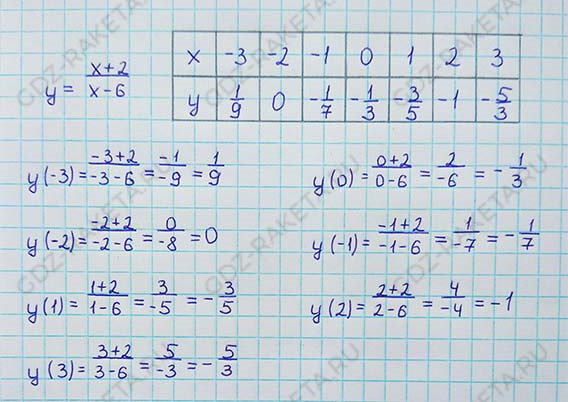 y = (x+2)/(x-6)
x -3 -2 -1 0 1 2 3
y 1/9 0 -1/7 -1/3 -3/5 -1 -5/3
y(-3) = (-3+2)/(-3-6) = -1/-9 = 1/9
y(0) = (0+2)/(0-6) = 2/-6 = -1/3
y(-2) = (-2+2)/(-2-6) = 0/-8 = 0
y(-1) = (-1+2)/(-1-6) = 1/-7 = -1/7
y(1) = (1+2)/(1-6) = 3/-5 = -3/5
y(2) = (2+2)/(2-6) = 4/-4 = -1
y(3) = (3+2)/(3-6) = 5/-3 = -5/3
GDZ-RAKETA.RU